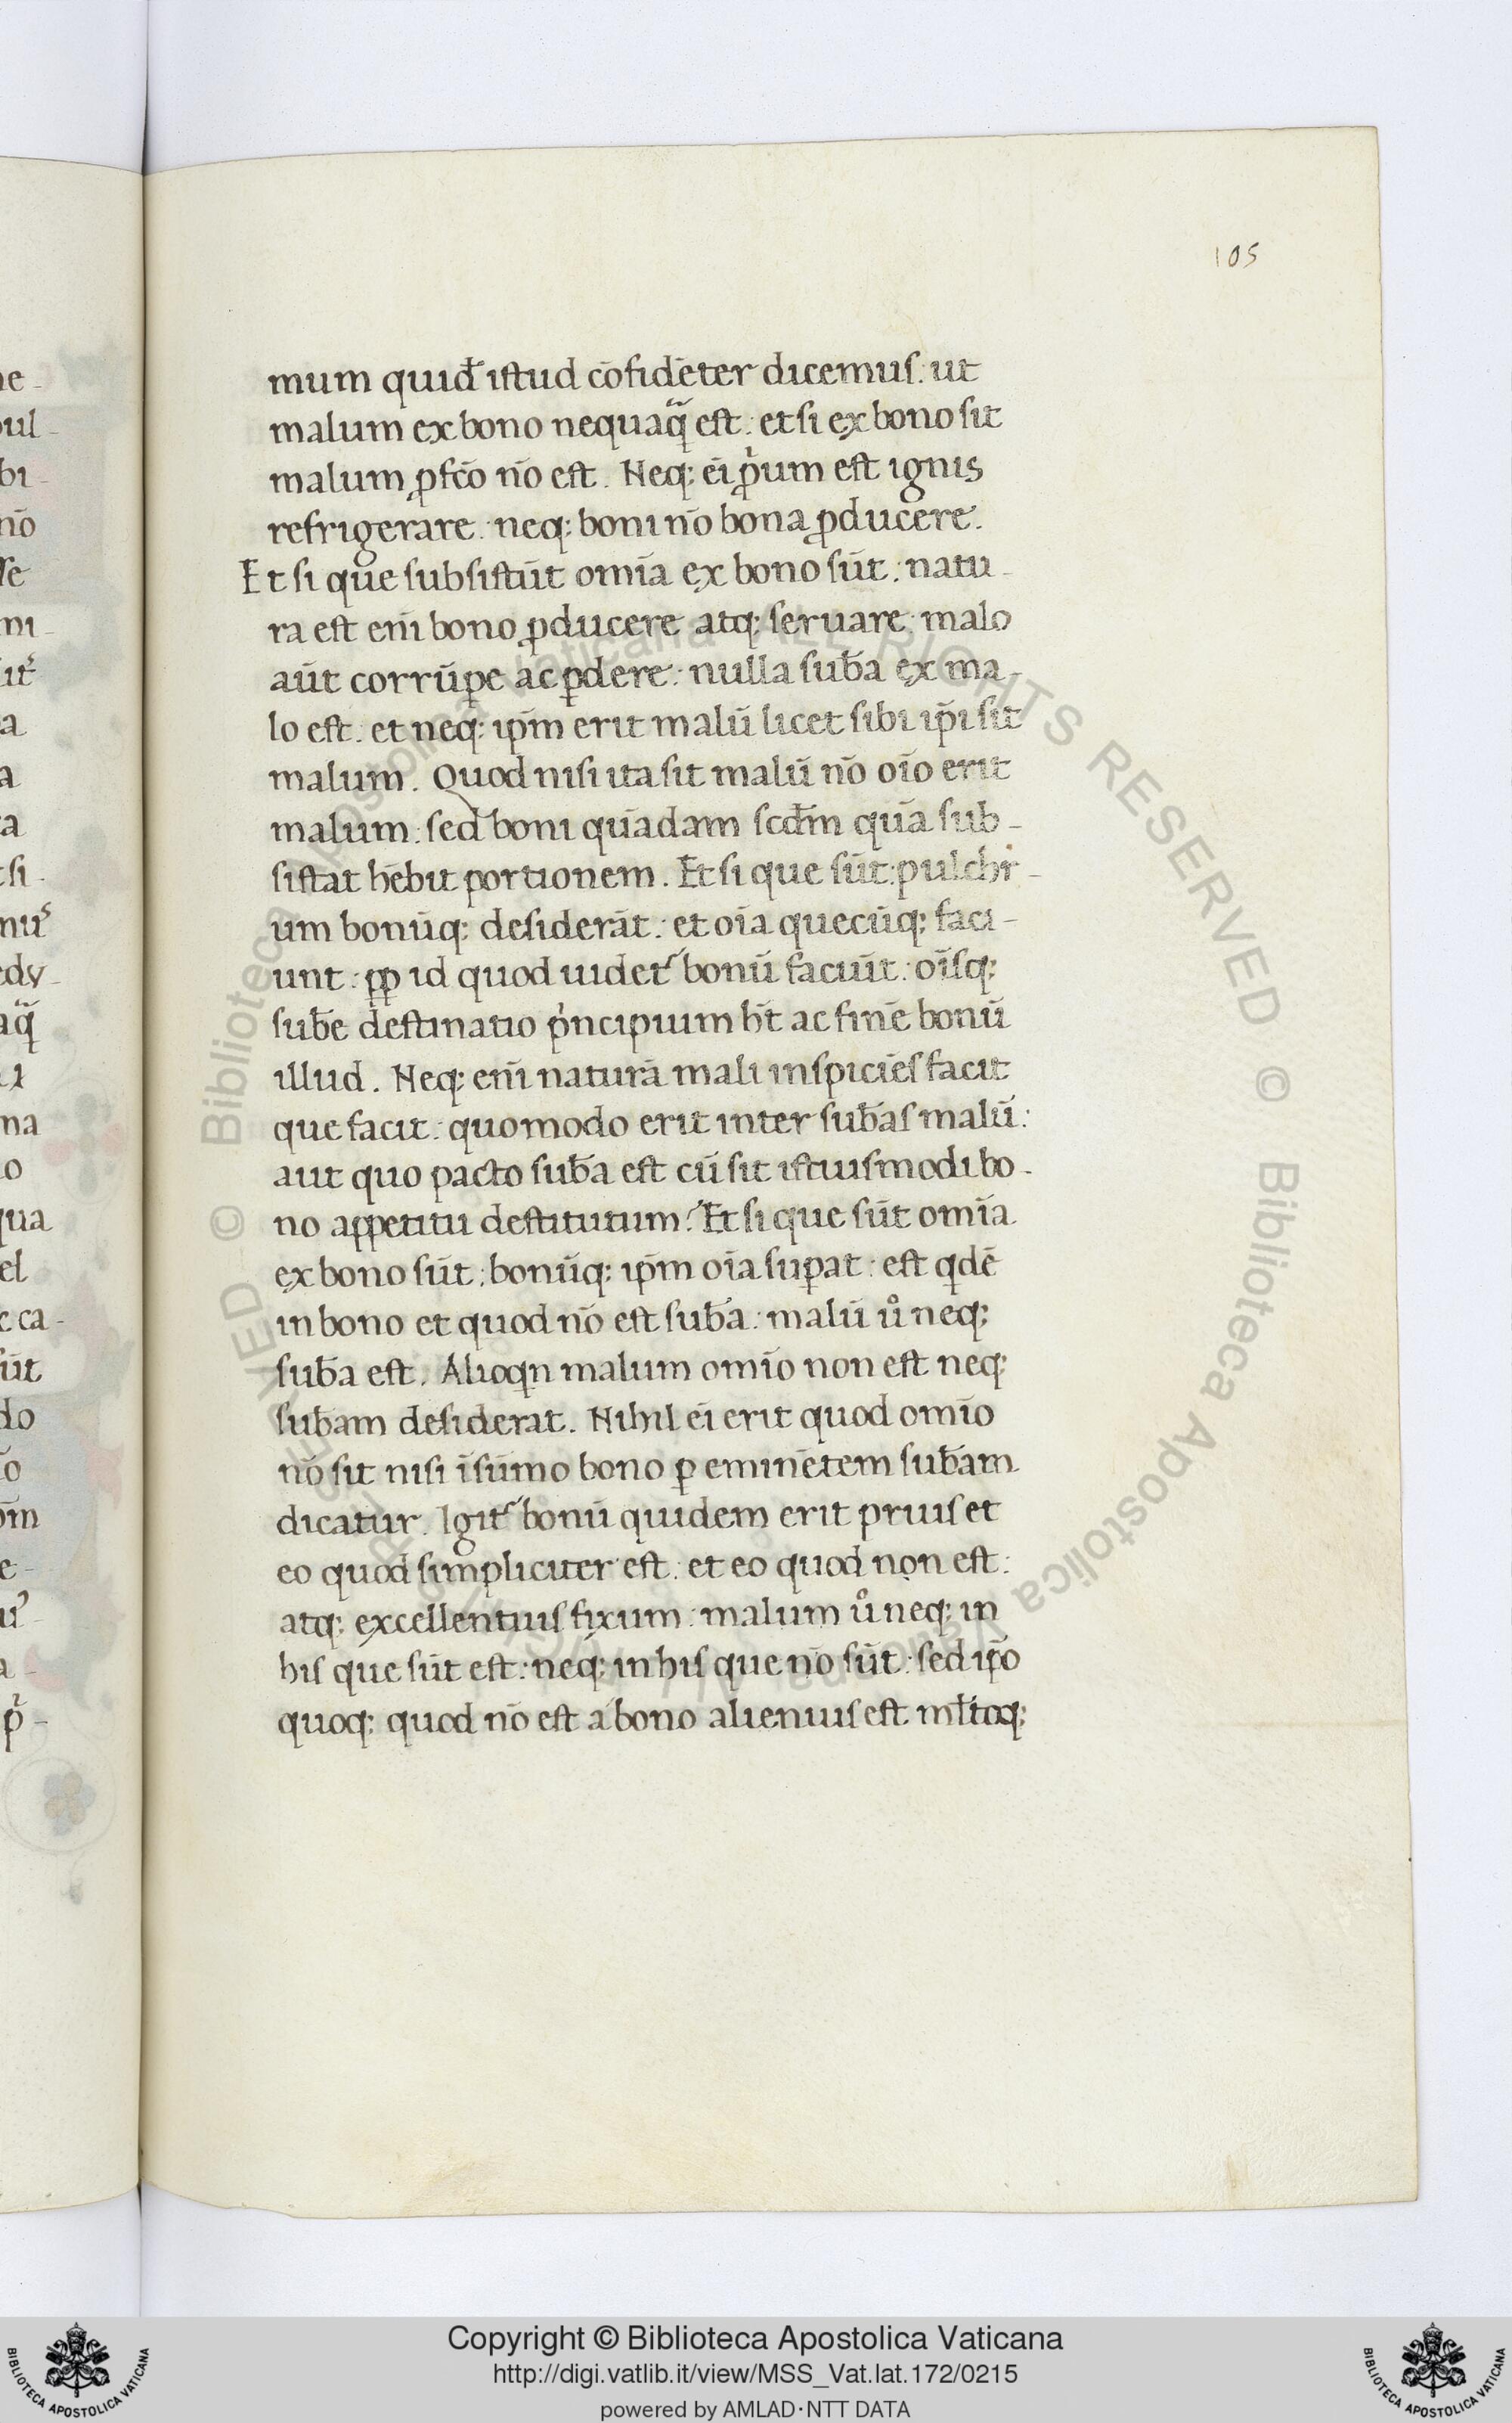 105
mum quid̃ istud cōfidēter dicemus: ut
malum ex bono nequaq̃ est: et si ex bono sit
malum ꝓfc̄o nō est. Neq; ei̅ ꝓ̍um est ignis
refrigerare: neq; boni nō bona ꝓducere.
Et si que subsistūt om̄ia ex bono sūt: natu-
ra est eni̅ bono ꝓducere atq; seruare: malo
aūt corrūꝑe ac ꝑdere: nulla sub̄a ex ma-
lo est: et neq; ip̄m erit malū licet sibi ip̄i sit
malum. Quod nisi ita sit malū nō oīo erit
malum: sed boni quādam scd̄m quā sub-
sistat hēbit portionem. Et si que sūt: pulchr-
um bonūq; desiderāt: et oīa quecūq; faci-
unt: ꝓꝑ id quod uidet᷑ bonū faciūt: oīsq;
sub̄e destinatio p̍ncipium h̄t ac finē bonū
illud. Neq; eni̅ naturā mali inspiciēs facit
que facit: quomodo erit inter sub̄as malū:
aut quo pacto sub̄a est cū sit istiusmodi bo-
no appetitu destitutum? Et si que sūt om̄ia
ex bono sūt: bonūq; ip̄m oīa suꝑat: est qdē
in bono et quod nō est sub̄a: malū ů neq;
sub̄a est. Alioqn malum omīo non est neq;
sub̄am desiderat. Nihil ei̅ erit quod omīo
nō sit nisi ī sūmo bono ꝑ eminētem sub̄am
dicatur. Igit᷑ bonū quidem erit prius et
eo quod simpliciter est: et eo quod non est:
atq; excellentius fixum: malum ů neq; in
his que sūt est: neq; in his que nō sūt: sed ip̄o
quoq; quod nō est a bono alienius est ml̄toq;
Copyright © Biblioteca Apostolica Vaticana
http://digi.vatlib.it/view/MSS_Vat.lat.172/0215
powered by AMLAD·NTT DATA